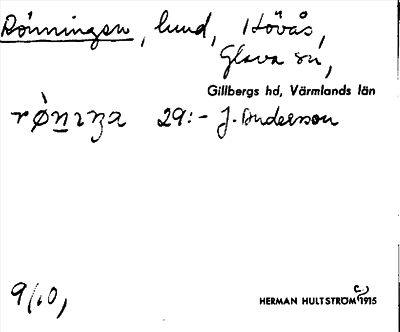 Rönningen, lund, Hövås,
Glava sn,
Gillbergs hd, Värmlands län
29:- J. Anderson
9/10,
HERMAN HULTSTRÖM c:) 1915